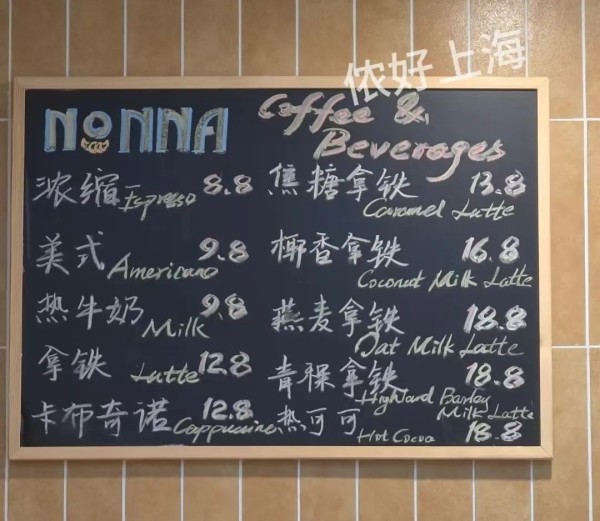 侬好上海
NONNA
Coffee &
Beverages
浓缩 Espresso 8.8
美式 Americano 9.8
热牛奶 Milk 9.8
拿铁 Latte 12.8
卡布奇诺 Cappuccino 12.8
焦糖拿铁 13.8
Caramel Latte
椰香拿铁 16.8
Coconut Milk Latte
燕麦拿铁 18.8
Oat Milk Latte
青稞拿铁 18.8
Highland Barley
Milk Latte
热可可 Hot Cocoa 18.8